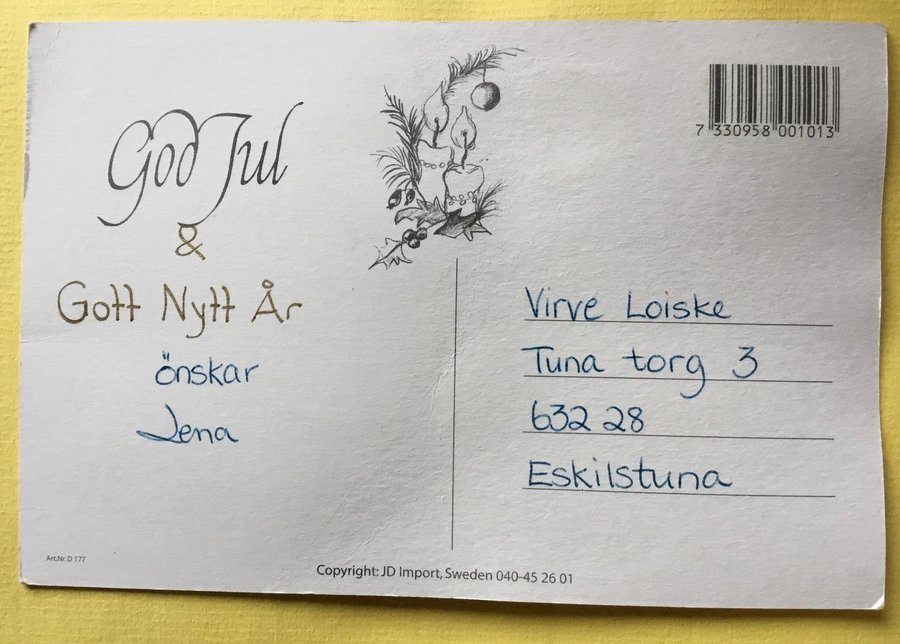 God Jul
&
Gott Nytt År
önskar
Jena
7 330958 001013
Virve Loiske
Tuna torg 3
632 28
Eskilstuna
Art.Nr. D 177
Copyright: JD Import, Sweden 040-45 26 01